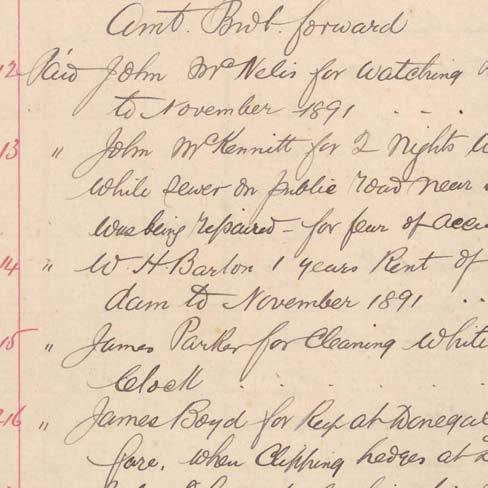 Amt. Brot. forward
12 Paid John McNelis for watching
to November 1891 . - .
13 " John McKennitt for 2 Nights
while sewer on public road near
was being repaired - for fear of
14 " W. H. Barton 1 years Rent of
dam to November 1891 . .
15 " James Parker for Cleaning
Clock . . . . .
216 " James Boyd for Keep at Donegal
fare, when Clipping hedges at